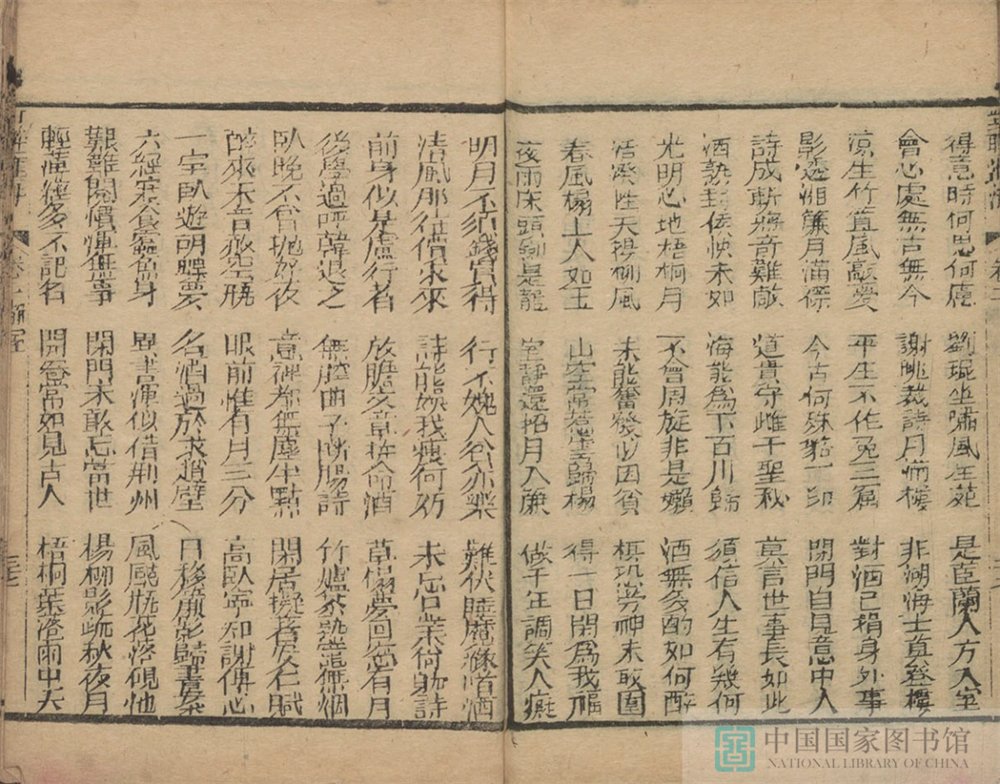 得意時何思何慮　劉琨坐嘯風生苑　是臣蘭人方入室
會心處無古無今　謝眺裁詩月滿樓　非湖海士直登樓
涼生竹宜風敲愛　平生不作兔三窟　對酒已捐身外事
影透湘簾月滿傑　今古何殊貉一邱　閉門自見意中人
詩成斬將奇難敵　道貴守雌千聖秘　莫言世事長如此
酒熟封侯快未如　海能爲下百川歸　須信人生有幾何
光明心地梧桐月　不會周旋非是嬾　酒無多酌如何醉
活潑性天楊柳風　未能奮發必因貧　棋玩旁神未敢圍
春風榻上人如玉　山空常抱雲歸榻　得一日閑爲我福
夜雨床頭劍是龍　室靜還招月入簾　做千年調笑人癡
明月不須錢買得　行不媿人貧亦樂　難伏睡魔緣惜酒
清風那得借求來　詩能娛我瘦何妨　未忘口業爲躭詩
前身似是盧行者　放膽文章拚命酒　草榻夢回窗有月
後學過呼韓退之　無腔曲子斷腸詩　竹爐茶熟竈無烟
臥晚不曾拋好夜　意裡都無塵半點　閑居擬著潘仁賦
醉來未音放空觴　眼前惟有月三分　高臥寧知謝傅心
一室臥遊胡蝶夢　名酒過於求趙璧　日移窗影歸書案
六經寒食蠹魚身　異書渾似借荊州　風颺瓶花落硯池
艱難閱慣渾無事　閑門未敢忘當世　楊柳影疏秋夜月
輕薄緣多不記名　開卷常如見古人　梧桐葉落雨中天
中国国家图书馆
NATIONAL LIBRARY OF CHINA